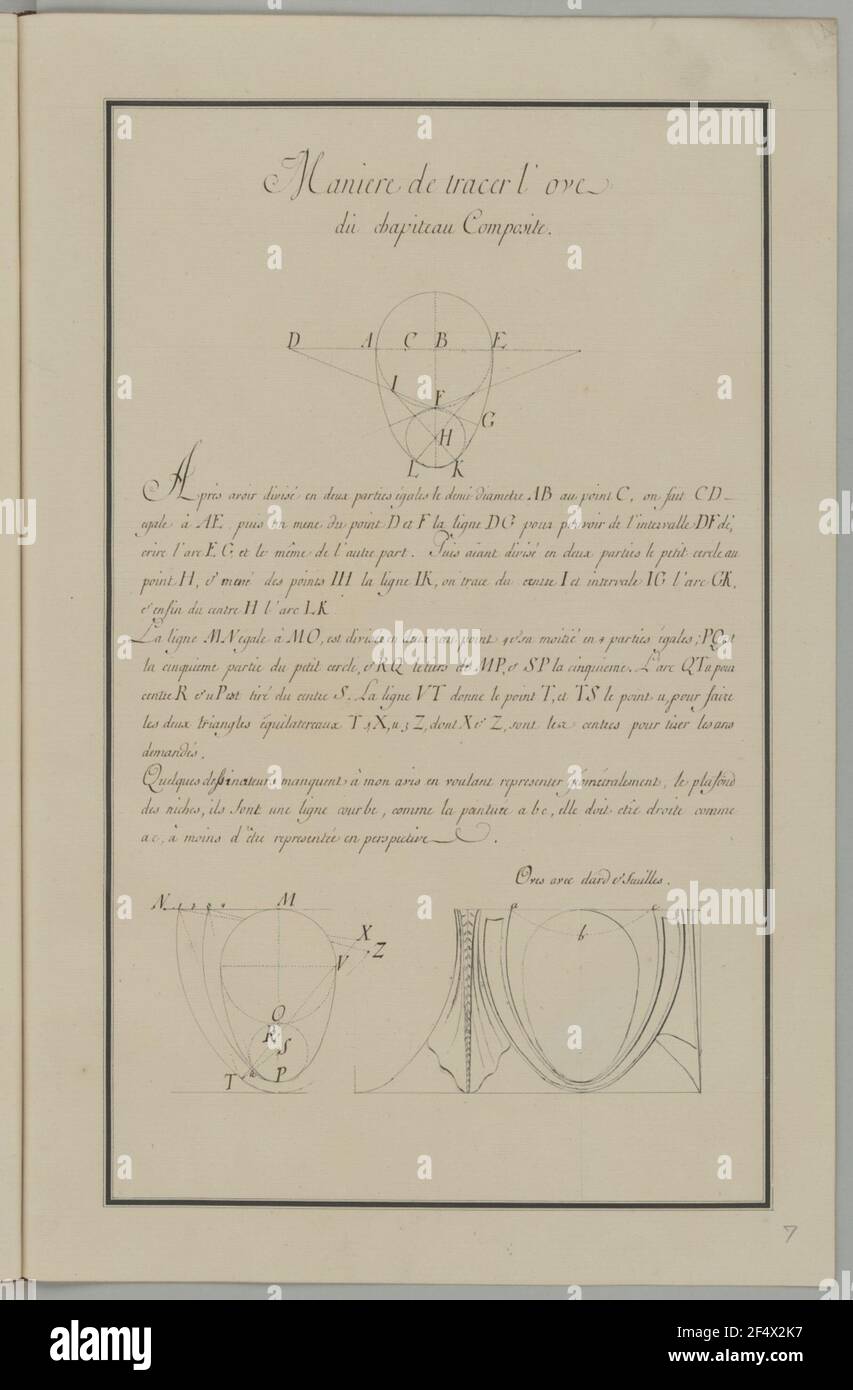 Maniere de tracer l'ove
du chapiteau Composite.
D A C B E
I F G
H
L K
Après avoir divisé en deux parties égales le demi diametre AB au point C, on fait CD
egale à AE, puis on mene du point D et F la ligne DG pour pouvoir de l'intervalle DF dé,
crire l'arc EG et le même de l'autre part. Puis aiant divisé en deux parties le petit cercle au
point H, & mené des points IH la ligne IK, on trace du centre I et intervale IG l'arc GK,
& enfin du centre H l'arc LK
La ligne MN egale à MO, est divisée en deux au point 4 & sa moitié en 4 parties égales; PQ est
la cinquieme partie du petit cercle, & RQ le tiers de MP, & SP la cinquieme. L'arc QTu pour
centre R & uP est tiré du centre S. La ligne VT donne le point T, et TS le point u, pour faire
les deux triangles équilatereaux T 4 X, u 3 Z, dont X & Z, sont les centres pour tirer les arcs
demandés.
Quelques dessinateurs manquent à mon avis en voulant representer géometralement, le plafond
des niches, ils font une ligne courbe, comme la peinture abc, elle doit etre droite comme
ac, à moins d'être representée en perspective.
Oves avec dard & feuilles.
N M a c
X b
Z
V
O
R
S
T u P
7
alamy
Image ID: 2F4X2K7
www.alamy.com